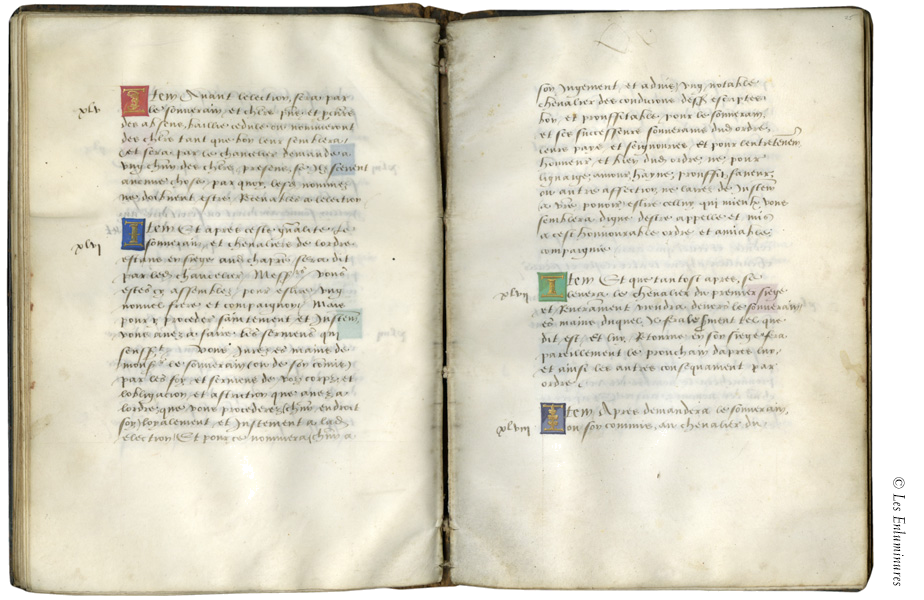 xlv
Item Avant lelection, sera par
le souverain, et chlrs
et seront par le chancelier demande a
aucune chose, par quoy, les nommez
ne doibvent estre Recevables a lelection
xlvi
Item Et apres ceste qualite, le
souverain, et chevaliers de lordre
estans en siege aux chapitre sera dit
par les chancelier Mess.rs Vous
estes cy assemblez pour eslire Ung
nouvel frere et compaignon, Mais
pour y proceder sainctement et Justem
vous avez a faire les sermens qui
senss.t Vous Jurez es mains de
mons.r le souverain (ou de son comis)
par les foy, et sermens de voz corps, et
lobligacion, et astriction que avez a
lordre, que vous procederez, en droit
soy, loyalement, et Justement a lad.
election, Et pour ce nommerez a
25
son Jugement, et advis Ung notable
chevalier des condicions dess. escriptes
bon, et prouffitable, pour le souverain,
et ses successeurs souverains dud. ordre,
leurs pays, et seignouries, et pour lentretenem
honneur, et bien dud. ordre, ne pour
lignaige, amour, hayne, prouffit, faveur,
ou autre affection, ne lairez de Justem
a vre. povoir eslire celluy qui mieulx vous
semblera digne destre appelle, et mis
a cest honnourable ordre, et amiable
compaignie.
xlvii
Item Et que tantost apres, se
levera le chevalier du premier siege
et Reveramment viendra devers le souverain
es mains duquel Il fera le serment tel que
dit est, et luy Retourne en son siege fera
pareillement le prouchain dapres luy,
et ainsi les autres consequamment par
ordre.
xlviii
Item Apres demandera le souverain,
ou son commis, au chevalier du
© Les Enluminures